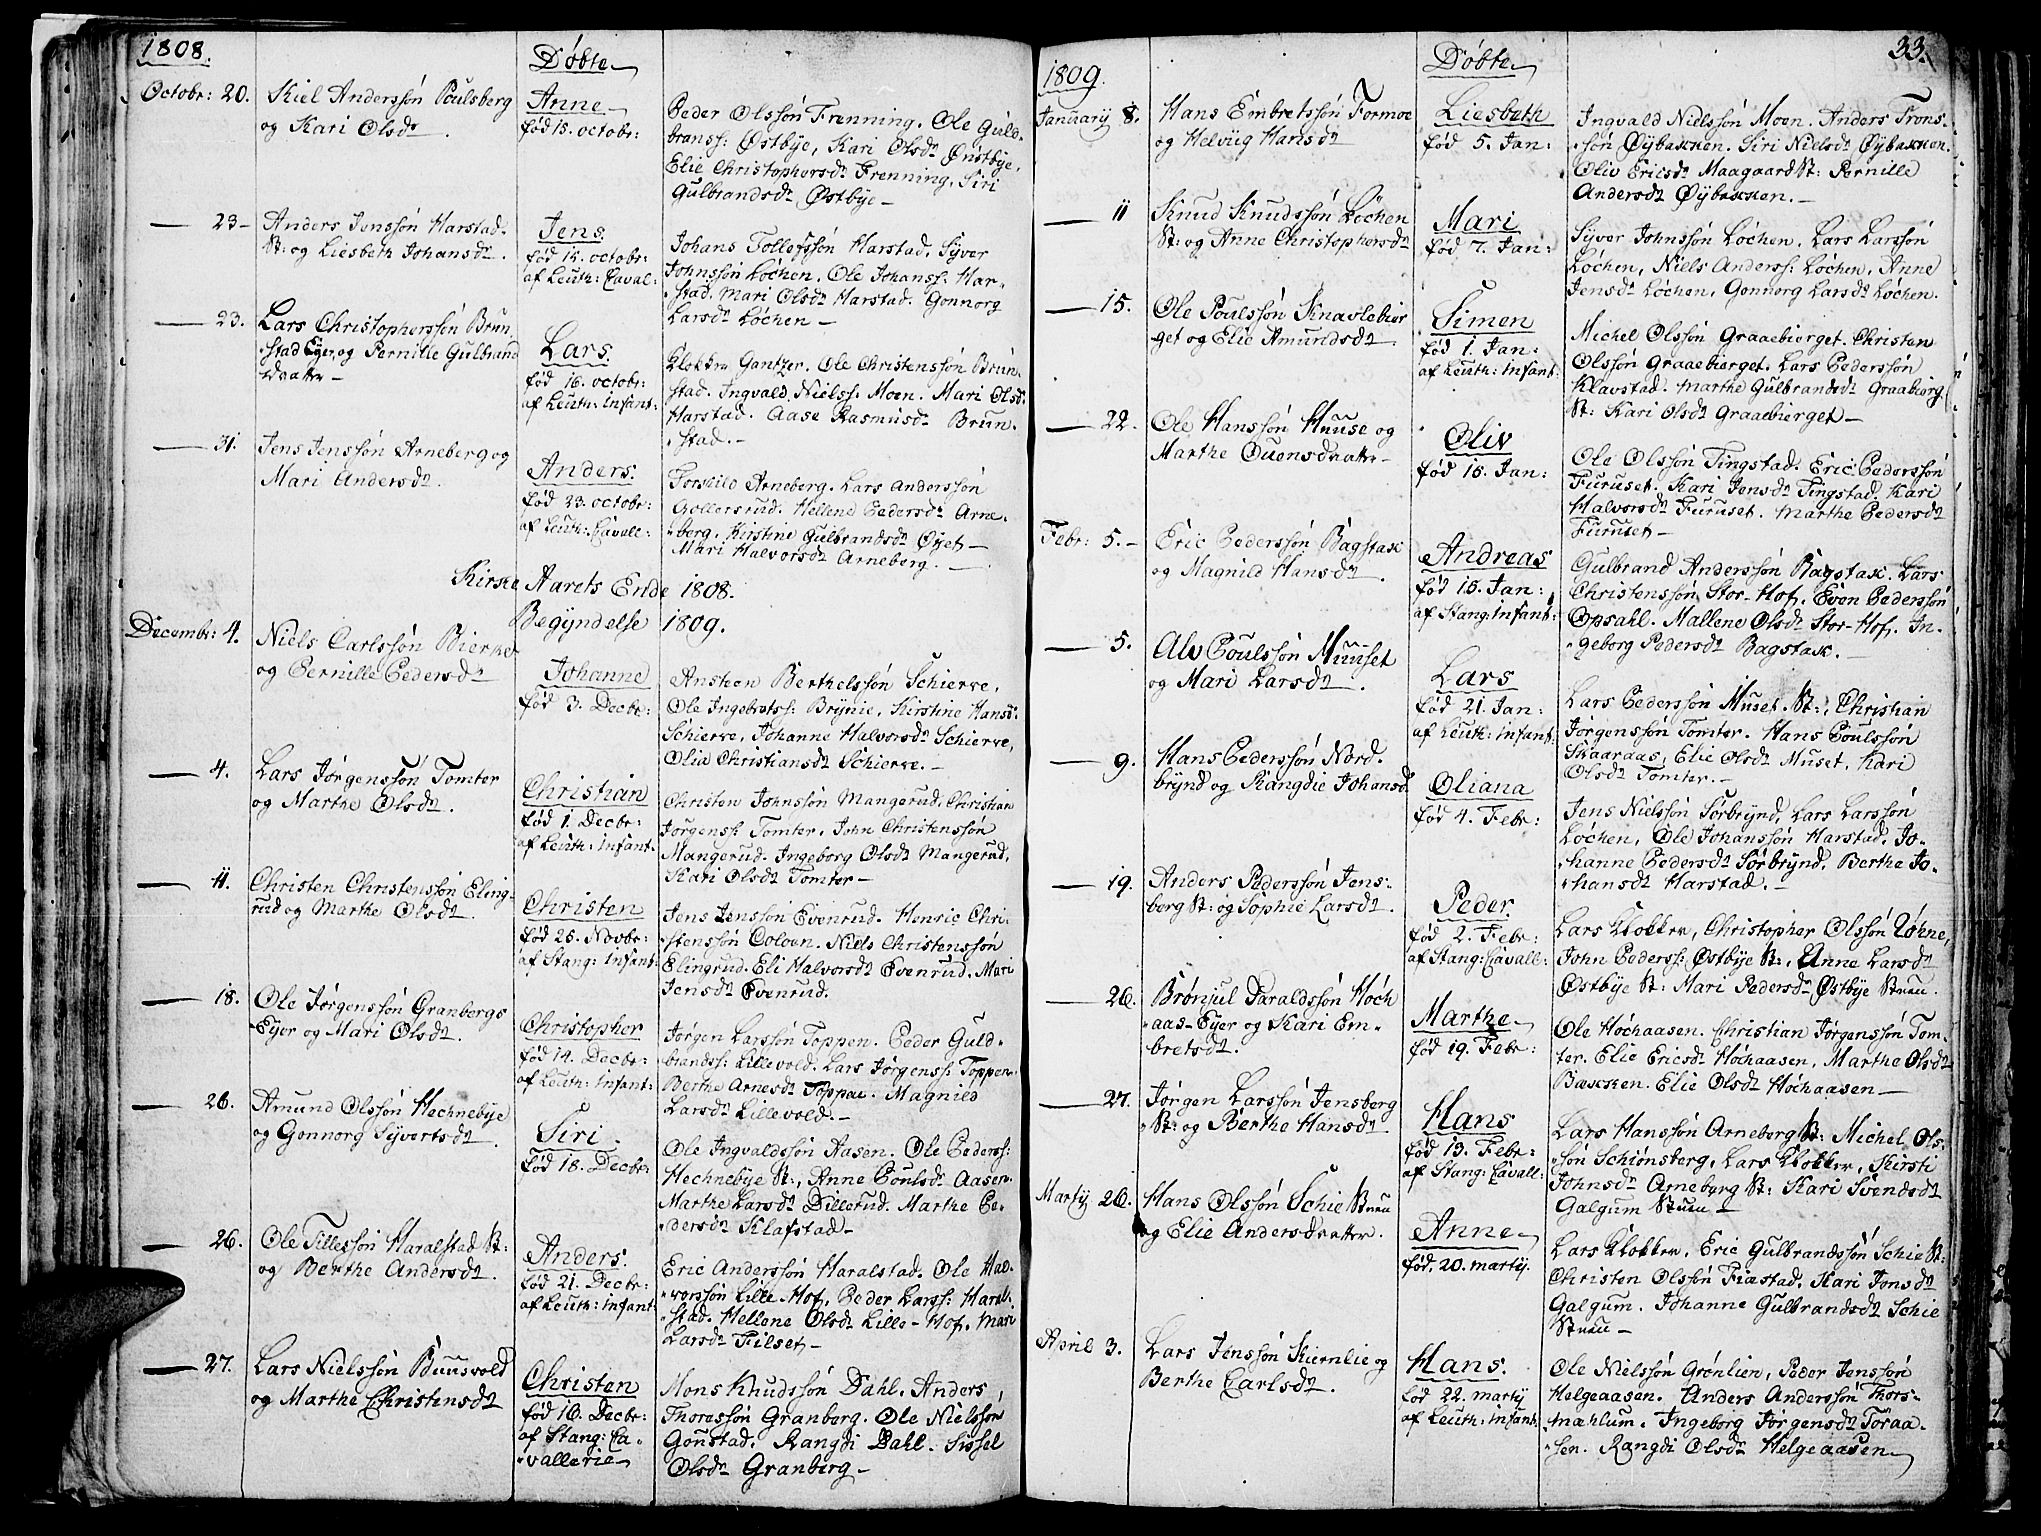 1808.
Døbte
Octobr: 20.
Kiel Anderssøn Poulsberg
og Kari Olsdr.
Anne
fød 15. octobr:
Peder Olssøn Frenning. Ole Guld-
branss: Østbye, Kari Olsdr Østbye,
Elie Christophersdr Frenning, Siri
Gulbrandsdr Østbye
23
Anders Jenssøn Harstad-
St: og Liesbeth Johansdr.
Jens
fød 15. octobr:
af Leuth: Caval:
Johans Tollefssøn Harstad, Syver
Johnssøn Løchen. Ole Johanss: Har-
stad. Mari Olsdr Harstad. Gonnorg
Larsdr Løchen
23.
Lars Christopherssøn Brun
stad Eger, og Pernille Gulbrand
dratter
Lars.
fød 16. octobr:
af Leuth: infant:
Klokker Gantzer. Ole Christenssøn Brun
stad. Ingvald Nielss: Moen. Mari Olsdr
Harstad. Aase Rasmusdr Brun.
stad.
31.
Jens Jenssøn Arneberg og
Mari Andersdr.
Anders.
fød 23. octobr:
af Leuth: Cavall:
Torskild Arneberg. Lars Anderssøn
Gollersrud. Hellene Pedersdr Arne-
berg, Kirstine Gulbrandsdr Øyet
Mari Halvorsdr Arneberg.
Kirke Aarets Ende 1808.
Begyndelse 1809.
Decembr: 4.
Niels Carlssøn Bierke
og Pernille Pedersdr
Johanne
fød 3. Decbr:
Ansteen Berthelssøn Schierve,
Ole Ingebretss: Brynie, Kirstine Hansdr
Schierve, Johanne Halvorsdr Schierve,
Oliv Christiansdr Schierve.
4.
Lars Jørgenssøn Tomter
og Marthe Olsdr.
Christian
fød 1. Decbr:
af Leuth: infant:
Christen Johnssøn Mangerud, Christian
Jørgenss: Tomter, John Christenssøn
Mangerud. Ingeborg Olsdr Mangerud,
Kari Olsdr Tomter
11.
Christen Christenssøn Eling-
rud og Marthe Olsdr.
Christen
fød 25. Novbr:
af Stang: infant:
Jens Jenssøn Evenrud. Henric Chri-
stenssøn Coloen. Niels Christenssøn
Elingrud. Eli Halvorsdr Evenrud. Mari
Jensdr Evenrud.
18.
Ole Jørgenssøn Granbergs
Eyer og Mari Olsdr.
Christopher
fød 14. Decbr:
af Leuth: infant:
Jørgen Larssøn Toppen. Peder Guld-
brandss: Lillevold. Lars Jørgenss: Toppen.
Berthe Arnesdr Toppae. Magnild
Larsdr Lillevold.
26.
Amund Olssøn Hechnebye
og Gonnorg Syvertsdr.
Siri.
fød 18. Decbr:
Ole Ingvaldssøn Aasen. Ole Pederss:
Hechnebye St:, Anne Poulsdr Aasen.
Marthe Larsdr Dillerud. Marthe Pe-
dersdr Klafstad
26.
Ole Tillessøn Haralstad St:
og Berthe Andersdr.
Anders.
fød 21. Decbr:
af Leuth: infant:
Eric Anderssøn Haralstad. Ole Hal-
vorssøn Lille Hof, Peder Larss: Haral-
stad. Hellene Olsdr Lille-Hof, Mari
Larsdr Filset
27.
Lars Nielssøn Buusvold
og Marthe Christensdr
Christen
fød 16. Decbr:
af Stang: Ca-
vallerie
Mons Knudssøn Dahl. Anders
Thoressøn Granberg. Ole Nielssøn
Gonstad. Rangdi Dahl. Sissel
Olsdr Granberg
33.
1809.
Døbte
January 8.
Hans Embretssøn Formoe
og Helviig Hansdr
Liesbeth
fød 5. Jan:
Ingvald Nielssøn Moen. Anders Trons-
søn Øybakken. Siri Nielsdr Øybakken.
Oliv Ericsdr Maagaard St: Pernille
Andersdr Øybakken.
11
Knud Knudssøn Løchen
St: og Anne Christophersdr
Mari
fød 7. Jan:
Syver Johnssøn Løchen. Lars Larssøn
Løchen, Niels Anderss: Løchen, Anne
Jensdr Løchen, Gonnorg Larsdr Løchen.
15.
Ole Poulssøn Knavlebier
get og Elie Amundsdr.
Simen
fød 1. Jan:
af Leuth: infant:
Michel Olssøn Graaebierget. Christen
Olssøn Graaebierget. Lars Pederssøn
Klavstad. Marthe Gulbrandsdr Graabierg
St: Kari Olsdr Graaebierget
22.
Ole Hanssøn Huuse og
Marthe Ouensdratter
Oliv
fød 15. Jan:
Ole Olssøn Tingstad. Eric Pederssøn
Furuset. Kari Jensdr Tingstad. Kari
Halvorsdr Furuset. Marthe Pedersdr
Furuset
Febr: 5.
Eric Pederssøn Bagstax
og Magnild Hansdr.
Andreas
fød 15. Jan:
af Stang: infant:
Gulbrand Anderssøn Bagstax. Lars
Christenssøn Stor-Hof. Even Pederssøn
Opsahl. Mallene Olsdr Stor-Hof. In-
geborg Pedersdr Bagstax.
5.
Alv Poulssøn Muuset
og Mari Larsdr.
Lars
fød 21. Jan:
af Leuth: infant:
Lars Pederssøn Muset St:, Christian
Jørgenssøn Tomter. Hans Poulssøn
Skaaraas, Elie Olsdr Muset, Kari
Olsdr Tomter.
9.
Hans Pederssøn Nord-
brynd og Rangdie Johansdr
Oliana
fød 4. Febr:
Jens Nielssøn Sørbrynd, Lars Larssøn
Løchen, Ole Johanssøn Harstad. Jo-
hanne Pedersdr Sørbrynd, Berthe Jo-
hansdr Harstad.
19.
Anders Pederssøn Jens-
berg St: og Sophie Larsdr.
Peder.
fød 2. Febr:
af Stang: Cavall:
Lars Klokker, Christopher Olssøn Løhne,
John Pederss: Østbye St:, Anne Larsdr
Østbye St: Mari Pedersdr Østbye Stuen.
26.
Brønjul Haraldssøn Høch
aas-Eyer og Kari Em-
bretsdr.
Marthe
fød 19. Febr:
Ole Høchaasen. Christian Jørgenssøn Tom-
ter. Elie Ericsdr Høchaasen, Marthe Olsdr
Bæcken. Elie Olsdr Høchaasen
27.
Jørgen Larssøn Jensberg
St: og Berthe Hansdr
Hans
fød 13. Febr:
af Stang: Cavall:
Lars Hanssøn Arneberg St: Michel Ols-
søn Schiønsberg, Lars Klokker, Kirsti
Johnsdr Arneberg St: Kari Svendsdr
Galgum Stuen
Martij 26.
Hans Olssøn Schie Stuen
og Elie Andersdratter.
Anne
fød. 20. martij.
Lars Klokker, Eric Gulbrandssøn Schie St:
Christen Olssøn Fiæstad. Kari Jonsdr
Galgum. Johanne Gulbrandsdr Schie
Stuen
April 3.
Lars Jenssøn Kiernlie og
Berthe Carlsdr.
Hans.
fød 22. martij
af Leuth: infant:
Ole Nielssøn Grønlien, Peder Jenssøn
Helgeaasen. Anders Anderssøn Thors-
mæhlum. Ingeborg Jørgensdr Toraa-
sen. Rangdi Olsdr Helgeaasen